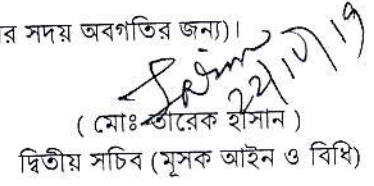 র সদয় অবগতির জন্য)।
22/10/19
( মোঃ তারেক হাসান )
দ্বিতীয় সচিব (মূসক আইন ও বিধি)